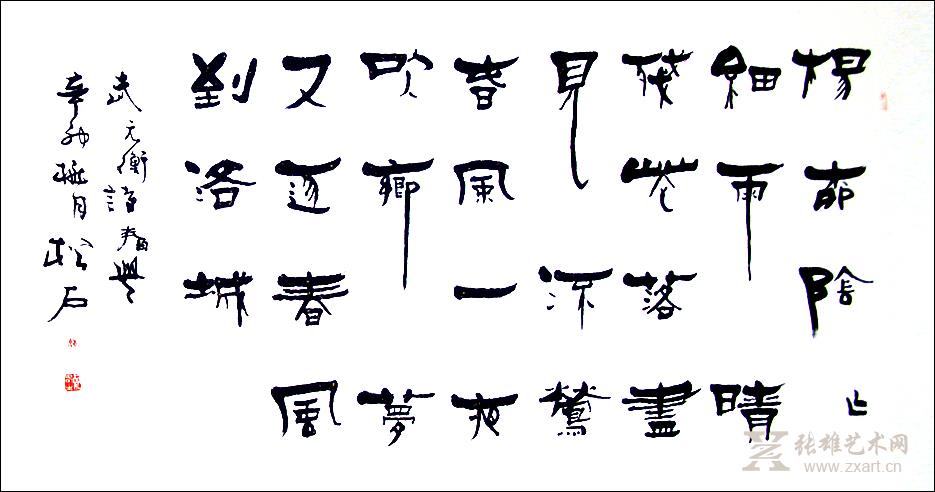 楊柳陰〻
細雨晴
殘花落盡
見流鶯
春風一夜
吹鄉夢
又逐春風
到洛城
武元衡詩春興
辛卯桃月松石
张雄艺术网
www.zxart.cn